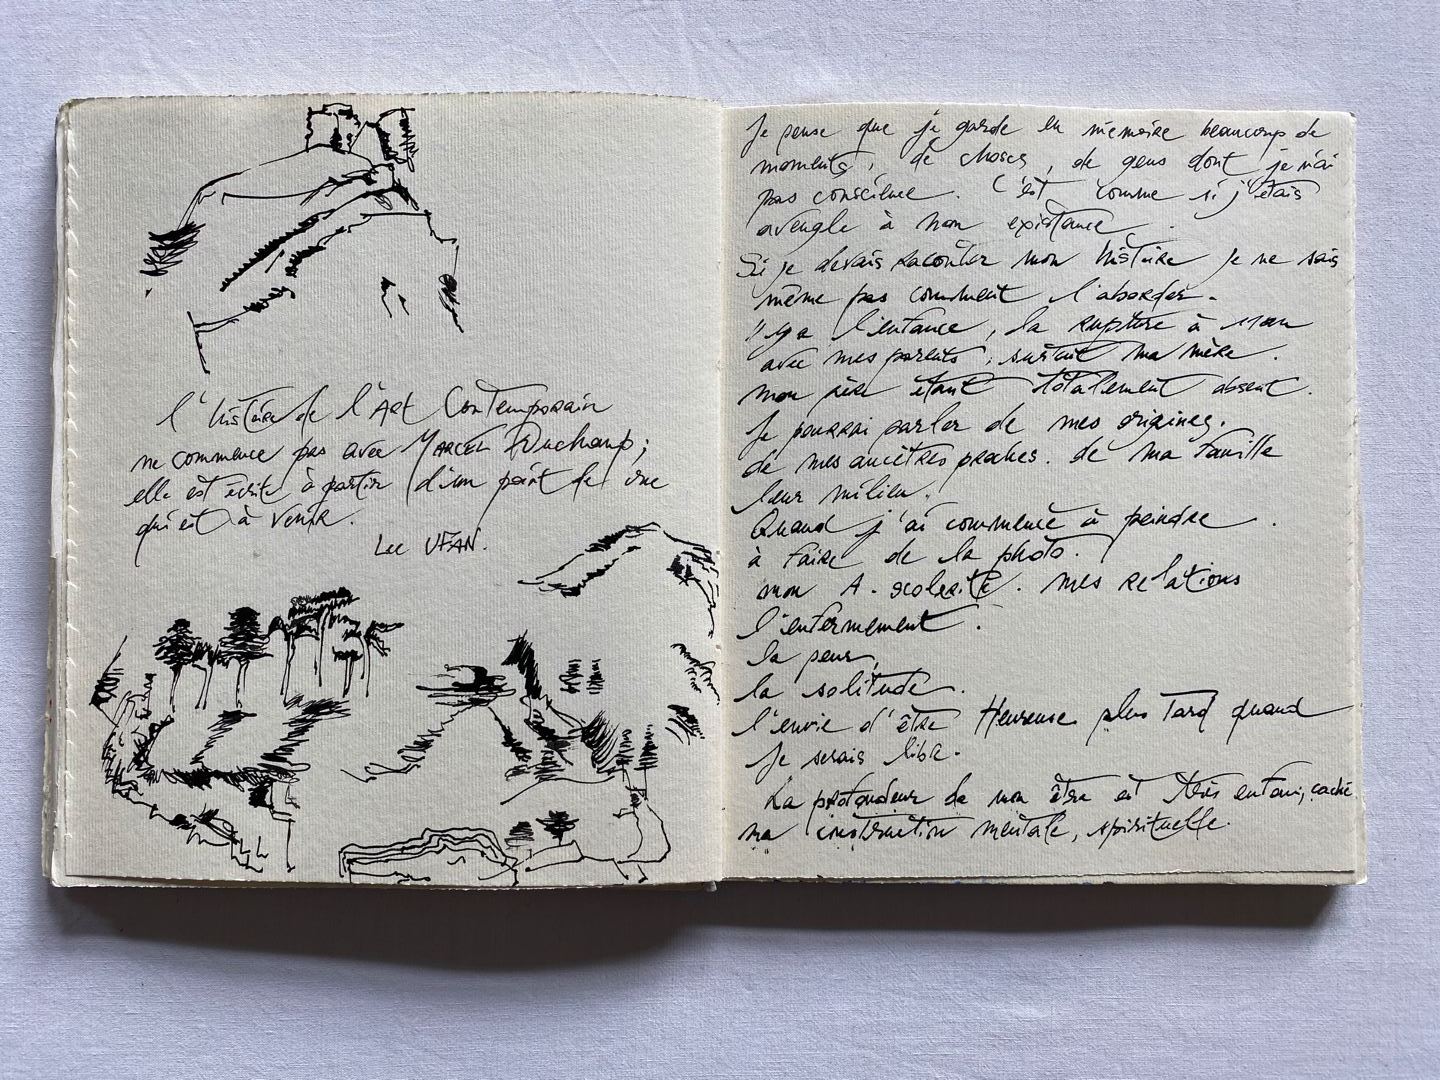 l'histoire de l'Art Contemporain
ne commence pas avec MARCEL Duchamp;
elle est écrite à partir d'un point de vue
qui est à venir.
Lee UFAN.
Je pense que je garde en mémoire beaucoup de
moments, de choses, de gens dont je n'ai
pas conscience. C'est comme si j'étais
aveugle à mon existence.
Si je devais raconter mon histoire je ne sais
même pas comment l'aborder.
il y a l'enfance, la rupture à 11 an
avec mes parents, surtout ma mère.
mon père étant totalement absent.
Je pourrai parler de mes origines.
de mes ancêtres proches. de ma famille
leur milieu.
Quand j'ai commencé à peindre.
à faire de la photo.
mon A. scolarité. mes relations
l'enfermement.
la peur,
la solitude.
l'envie d'être Heureuse plus tard quand
je serais libre.
La profondeur de mon être est très enfoui, caché
ma construction mentale, spirituelle.